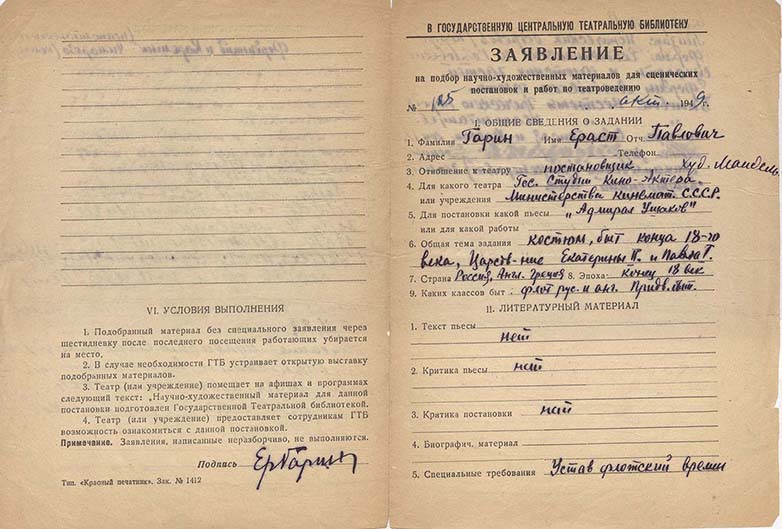 VI. УСЛОВИЯ ВЫПОЛНЕНИЯ
1. Подобранный материал без специального заявления через
шестидневку после последнего посещения работающих убирается
на место.
2. В случае необходимости ГТБ устраивает открытую выставку
подобранных материалов.
3. Театр (или учреждение) помещает на афишах и программах
следующий текст: „Научно-художественный материал для данной
постановки подготовлен Государственной Театральной библиотекой.
4. Театр (или учреждение) предоставляет сотрудникам ГТБ
возможность ознакомиться с данной постановкой.
Примечание. Заявления, написанные неразборчиво, не выполняются.
Подпись ЕрГарин
Тип. «Красный печатник». Зак. № 1412
В ГОСУДАРСТВЕННУЮ ЦЕНТРАЛЬНУЮ ТЕАТРАЛЬНУЮ БИБЛИОТЕКУ
ЗАЯВЛЕНИЕ
на подбор научно-художественных материалов для сценических
постановок и работ по театроведению
№ 125 окт. 1949г.
I. ОБЩИЕ СВЕДЕНИЯ О ЗАДАНИИ
1. Фамилия Гарин Имя Ераст Отч. Павлович
2. Адрес Телефон
3. Отношение к театру постановщик худ. Мандель
4. Для какого театра Гос. Студии Кино-Актера
или учреждения Министерства Кинемат. СССР.
5. Для постановки какой пьесы „Адмирал Ушаков"
или для какой работы
6. Общая тема задания костюм, быт конца 18-го
века, Царств-ние Екатерины II. и Павла I.
7. Страна Россия, Англ. Греция 8. Эпоха конец 18 век
9. Каких классов быт флот рус. и анг. Придв. быт.
II. ЛИТЕРАТУРНЫЙ МАТЕРИАЛ
1. Текст пьесы
нет
2. Критика пьесы нет
3. Критика постановки нет
4. Биографич. материал
5. Специальные требования Устав флотский времен